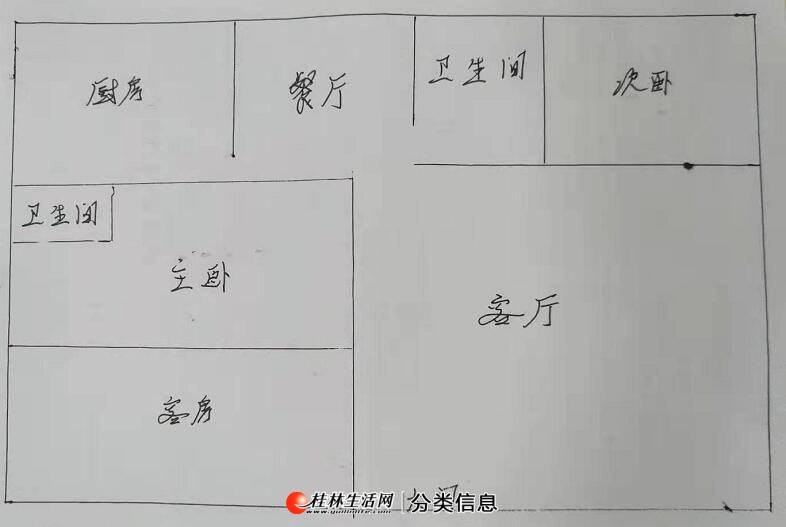 厨房
餐厅
卫生间
次卧
卫生间
主卧
客厅
客房
桂林生活网
分类信息